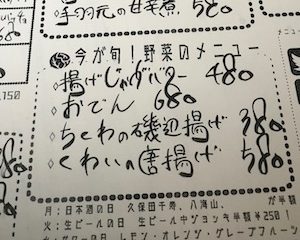 手羽元の甘辛煮 580
今が旬！野菜のメニュー
揚げじゃがバター 480
おでん 680
ちくわの磯辺揚げ 380
くわいの唐揚げ 580
月：日本酒の日 久保田千寿、八海山、 が半額
火：生ビールの日 生ビール中ジョッキ半額￥250！
レモン・オレンジ・グレープフルーツ